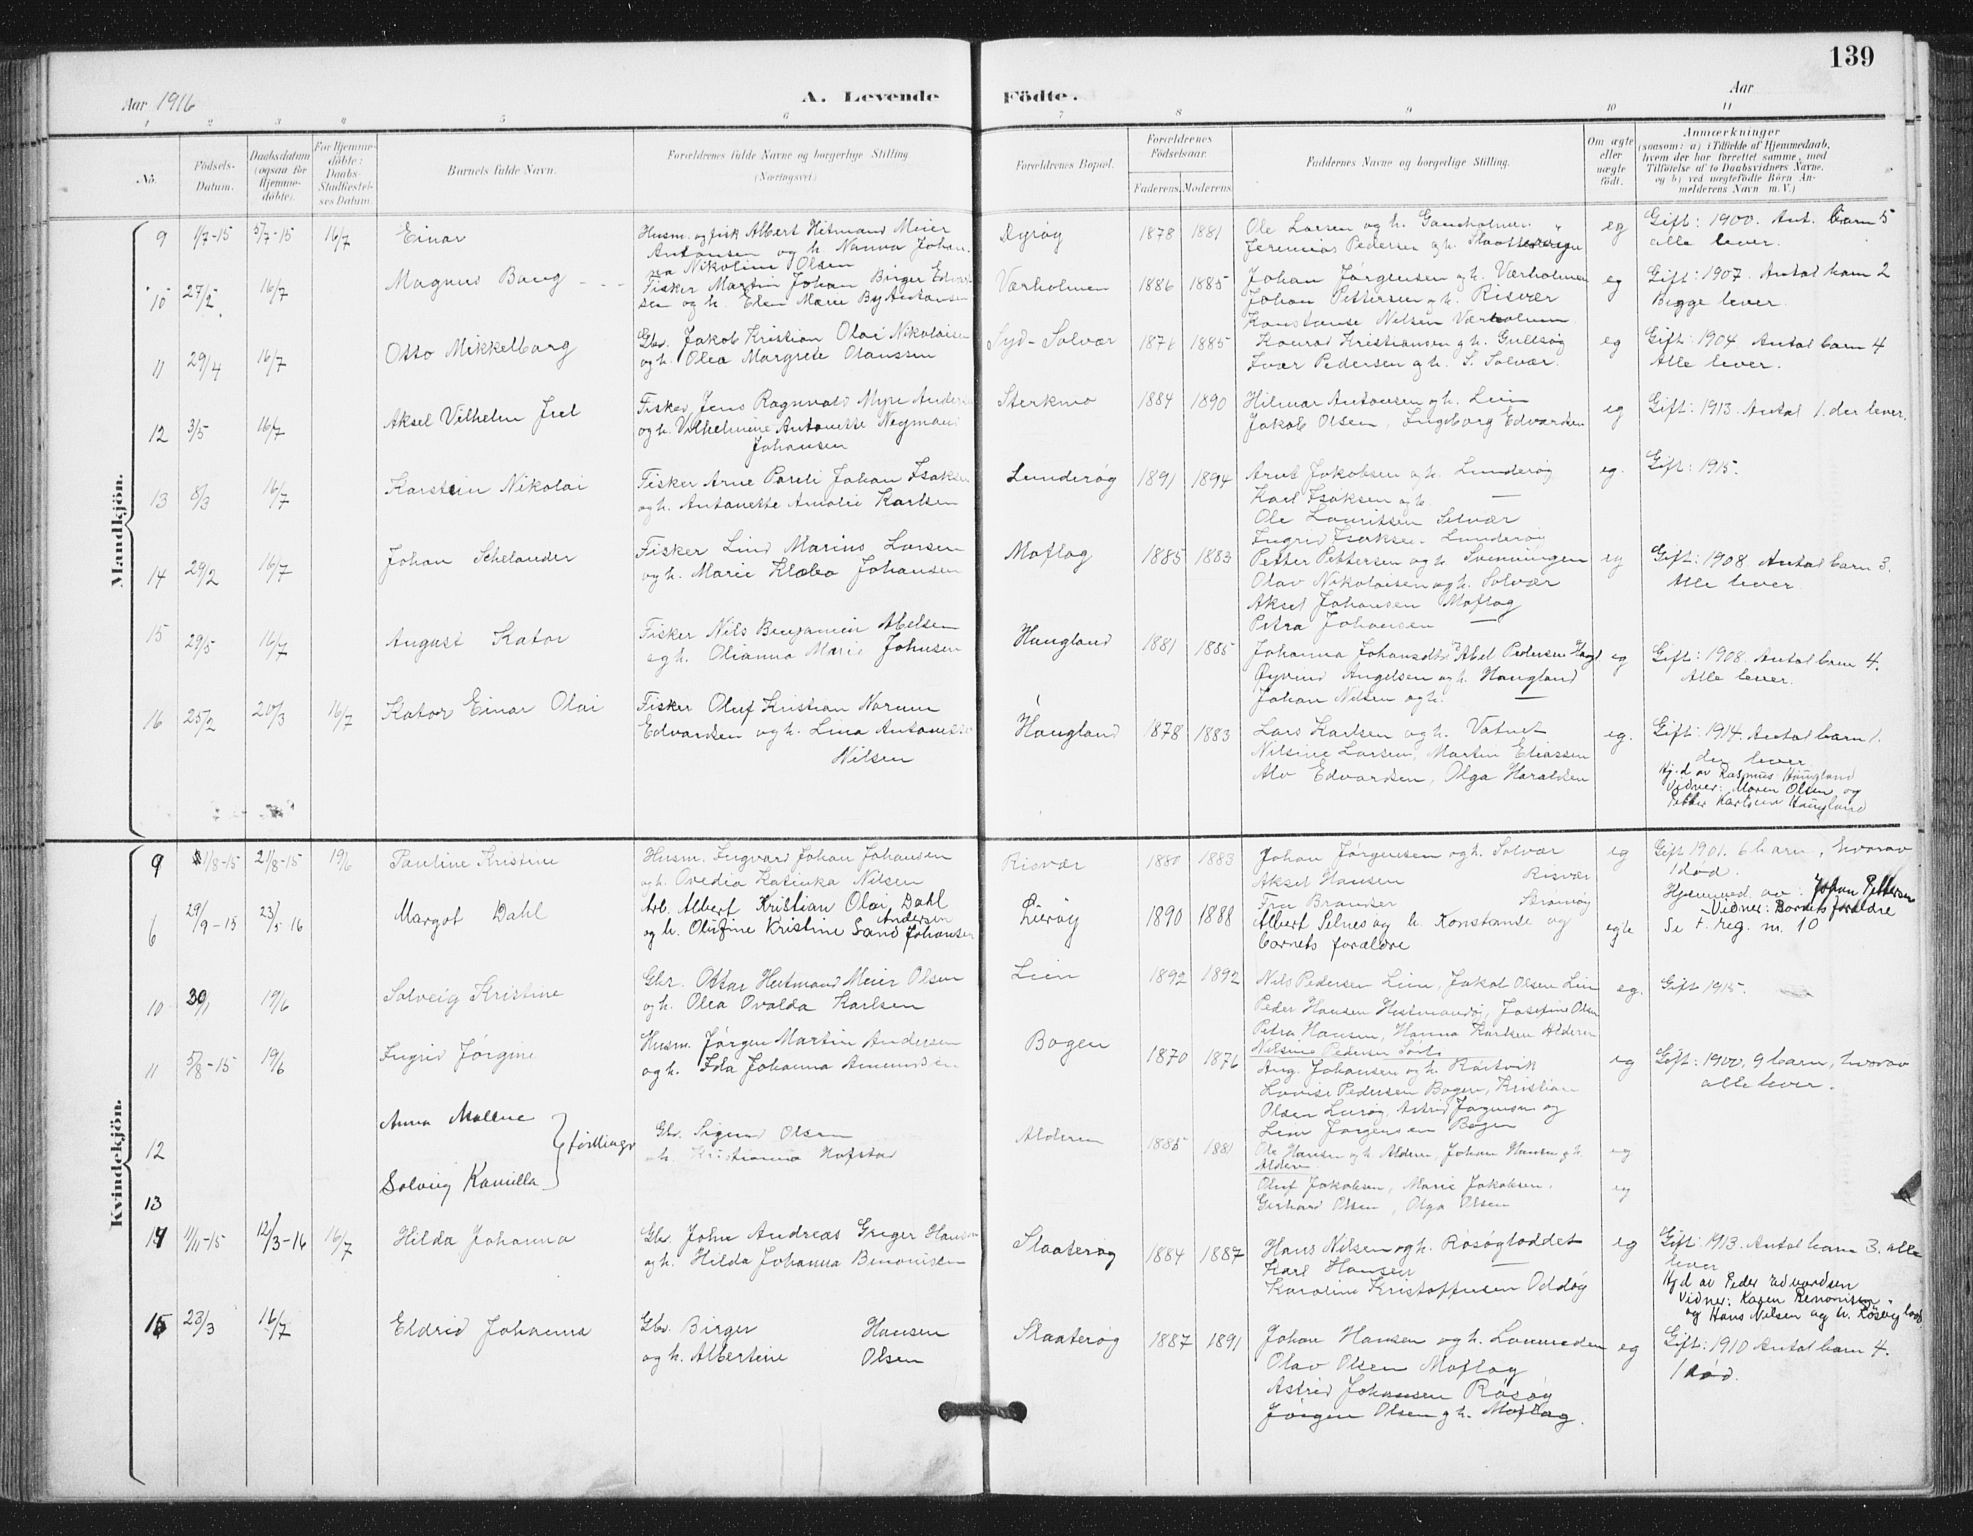 139
Aar 1916
A. Levende Födte.
Aar
1 2 3 4 5 6 7 8 9 10 11
No.
Födsels-Datum.
Daabsdatum (ogsaa for Hjemmedöbte).
For Hjemmedöbte: Daabs-Stadfæstelses Datum.
Barnets fulde Navn.
Forældrenes fulde Navne og borgerlige Stilling (Næringsvei)
Forældrenes Bopæl.
Forældrenes Födselsaar.
Faderens. Moderens.
Faddernes Navne og borgerlige Stilling.
Om ægte eller uægte födt.
Anmærkninger
(saasom: a) i Tilfælde af Hjemmedaab, hvem der har forrettet samme, med Tilföielse af to Daabsvidners Navne, og b) ved uægtefödte Börn Anmelderens Navn m. V.)
Mandkjön.
9 1/7-15 5/7-15 16/7 Einar
Husm. og fisk Albert Hitmand Meier
Antonsen og h. Nanna Johan-
na Nikoline Olsen
Dyrøy 1878 1881
Ole Larsen og h. Gaasholmen
Jeremias Pedersen og h. Slaatterøyen
eg
Gift: 1900. Ant. barn 5
alle lever.
10 27/2 16/7 Magnus Bang
Fisker Martin Johan Birger Edvard-
sen og h. Elen Marie By Antonsen
Værholmen 1886 1885
Johan Jørgensen og h. Værholmen
Johan Pettersen og h. Risvær
Konstanse Nilsen Værholmen
eg
Gift: 1907. Antal barn 2
Begge lever.
11 29/4 16/7 Otto Mikkelborg
Gbr. Jakob Kristian Olai Nikolaisen
og h. Olea Margrete Olaussen
Syd-Solvær 1876 1885
Konrad Kristiansen og h. Gullsøy
Ivar Pedersen og h. S. Solvær.
eg
Gift: 1904. Antal barn 4
Alle lever.
12 3/5 16/7 Aksel Vilhelm Juel
Fisker Jens Ragnvald Myre Anders
og h. Vilhelmine Antonette Neyman
Johansen
Sterkmo 1884 1890
Hilmar Antonsen og h. Lein
Jakob Olsen, Ingeborg Edvardsen
eg
Gift: 1913. Antal 1. der lever.
13 8/3 16/7 Karstein Nikolai
Fisker Arne Pareli Johan Isaksen
og h. Antonette Amalie Karlsen
Lunderøy 1891 1894
Arnt Jakobsen og h. Lunderøy
Karl Isaksen og h. —
Ole Lauritsen Selvær
Ingrid Isaksen Lunderøy
eg.
Gift: 1915.
14 29/2 16/7 Johan Schelander
Fisker Lind Marius Larsen
og h. Marie Klæbo Johansen
Moflag 1885 1883
Petter Pettersen og h. Svenningen
Olav Nikolaisen og h. Solvær
Aksel Johansen Moflag
Petra Johansen —
eg
Gift: 1908. Antal barn 3.
Alle lever.
15 29/5 16/7 August Kator
Fisker Nils Benjamin Abelsen
og h. Olianna Marie Johnsen
Haugland 1881 1885
Johanna Johansdtr Abel Pedersen Haugl
Øyvind Angelsen og h. Haugland
Johan Nilsen og h. —
eg
Gift: 1908. Antal barn 4.
Alle lever.
16 25/2 20/3 16/7 Kator Einar Olai
Fisker Oluf Kristian Norum
Edvardsen og h. Lina Antonette
Nilsen
Haugland 1878 1883
Lars Karlsen og h. Vatnet
Nilsine Larsen, Martin Eliassen
Alv Edvardsen, Olga Haraldsen
eg.
Gift: 1914. Antal barn 1.
der lever
Hj.d av Rasmus Haugland
Vidner: Maren Olsen og
Petter Karlsen Haugland
Kvindekjön.
9 1/8-15 21/8-15 19/6 Pauline Kristine
Husm. Ingvard Johan Johansen
og h. Ovedia Katinka Nilsen
Risvær 1880 1883
Johan Jørgensen og h. Solvær
Aksel Hansen Risvær
Fru Brandser Strømøy
eg
Gift 1901. 6 barn, hvorav
1 død.
Hjemmed. av: Johan Pettersen
Vidner: Barnets forældre
6 29/9-15 23/5-16 Margot Dahl
Arb. Albert Kristian Olai Dahl
Andersen
og h. Olufine Kristine Sand Johansen
Lurøy 1890 1888
Albert Selnes og h. Konstanse og
barnets forældre
egte
Se f. reg. nr. 10
10 30/1 19/6 Solveig Kristine
Gbr. Ottar Heitmand Meier Olsen
og h. Olea Ovalda Karlsen
Lien 1892 1892
Nils Pedersen Lien, Jakob Olsen Lien
Peder Hansen Hestmandøy, Josefine Olsen
Petra Hansen, Hanna Karlsen Alderen
Nilsine Pedersen
eg.
Gift 1915.
11 5/8-15 19/6 Ingrid Jørgine
Husm. Jørgen Martin Andersen
og h. Ida Johanna Amundsen
Bogen 1870 1876
Aug. Johansen og h. Kvitsvik
Lovise Pedersen Bogen, Kristian
Olsen Lurøy, Astrid Jørgensen og
Lina Jørgensen Bogen
eg
Gift: 1900. 9 barn, hvorav
alle lever.
12 Anna Mallene
13 Solveig Kamilla
} tvillinger
Gbr. Sigurd Olsen
og h. Kristianna Hofstad
Alderen 1885 1881
Ole Hansen og h. Alderen, Johan Hansen og h.
Alderen
Oluf Jakobsen, Marie Jakobsen,
Gerhard Olsen, Olga Olsen
eg
eg
14 1/11-15 12/3-16 16/7 Hilda Johanna
Gbr. John Andreas Greger Hansen
og h. Hilda Johanna Benonisen
Slaaterøy 1884 1887
Hans Nilsen og h. Rosøyloddet
Karl Hansen —
Karoline Kristoffersen Oddøy
eg
Gift: 1913. Antal barn 3. alle
lever
Hj.d av Peder Edvardsen
Vidner: Karen Benonisen
og Hans Nilsen og h. Rosøylodd.
15 23/3 16/7 Eldrid Johanna
Gbr. Birger Hansen
og h. Albertine Olsen
Slaaterøy 1887 1891
Johan Hansen og h.
Olav Olsen Moflag
Astrid Johansen Rosøy
Jørgen Olsen og h. Moflag.
eg
Gift: 1910 Antal barn 4.
1 død.